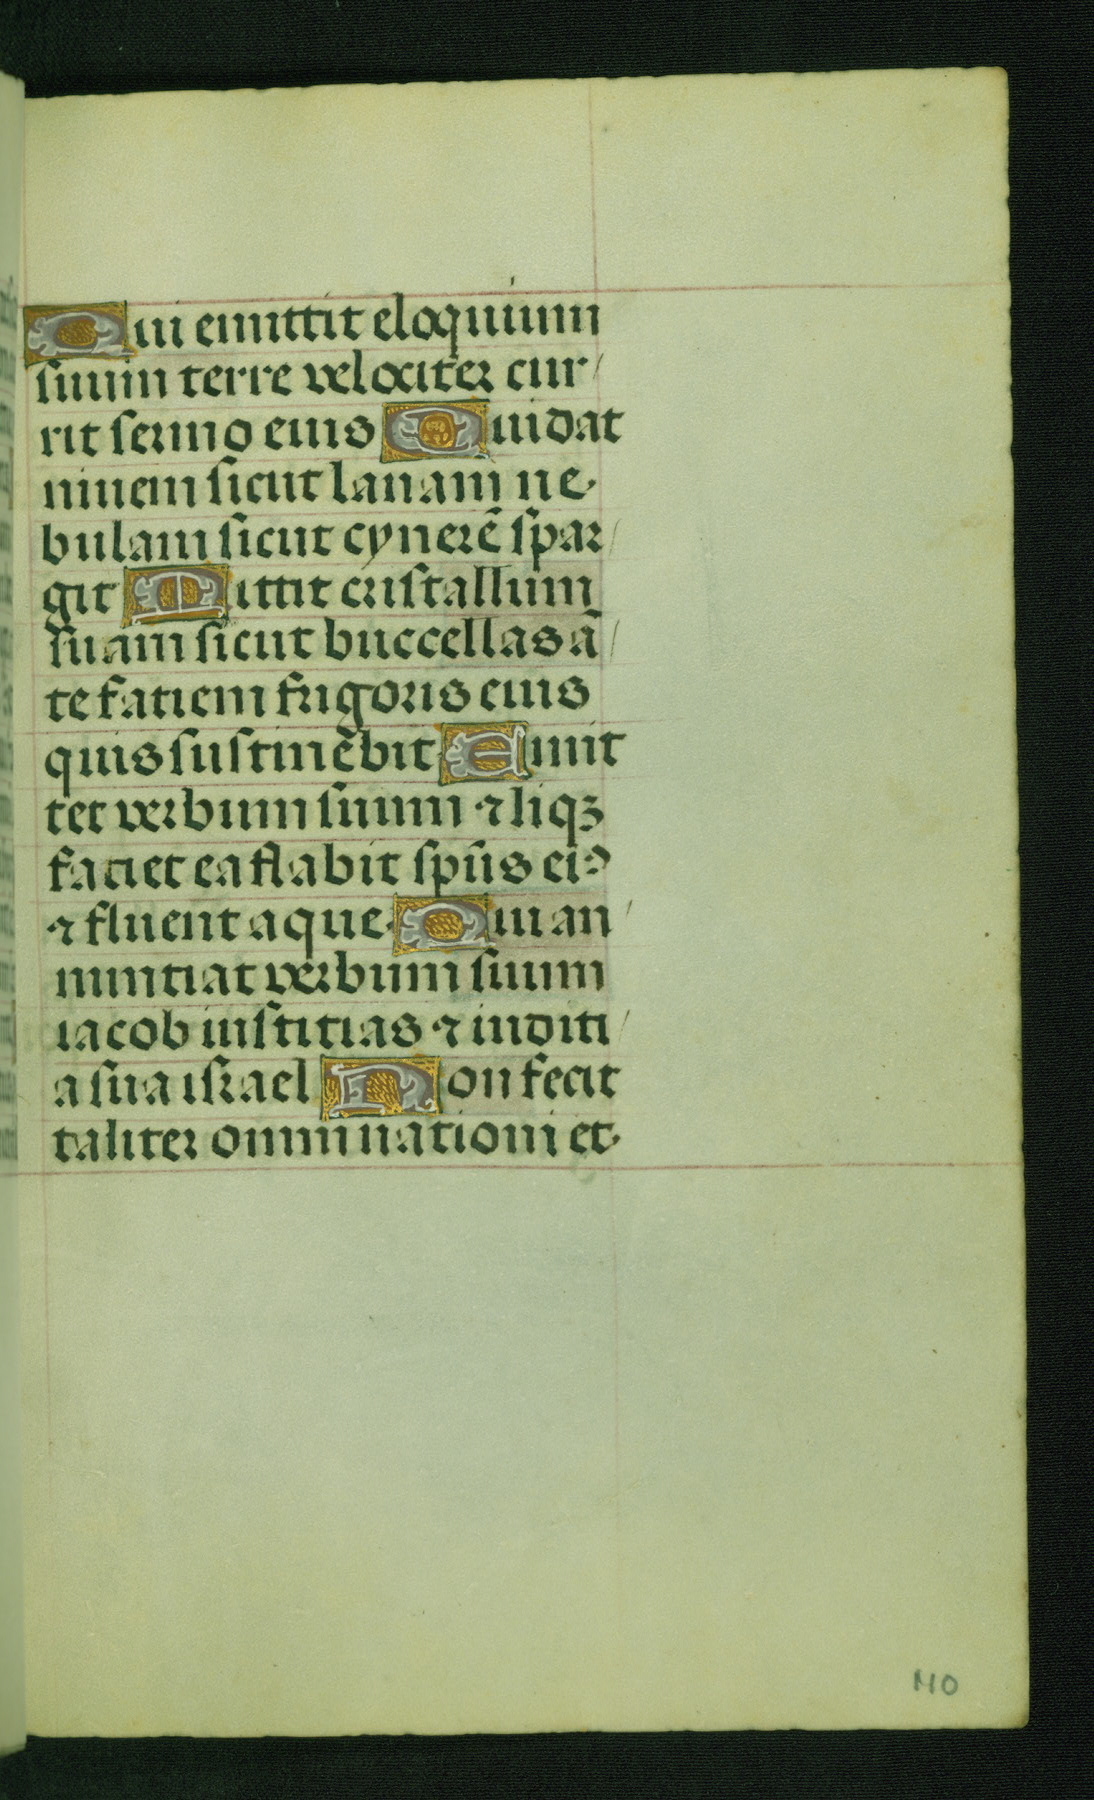 Qui emittit eloquium
suum terre velociter cur
rit sermo eius Qui dat
nivem sicut lanam ne
bulam sicut cynerē spar
git Mittit cristallum
suam sicut buccellas ā
te fatiem frigoris eius
quis sustinēbit Emit
tet verbum suum ⁊ liqꝫ
faciet ea flabit spūs eiꝰ
⁊ fluent aque Qui an
nuntiat verbum suum
iacob iustitias ⁊ iuditi
a sua israel Non fecit
taliter omni nationi et
110